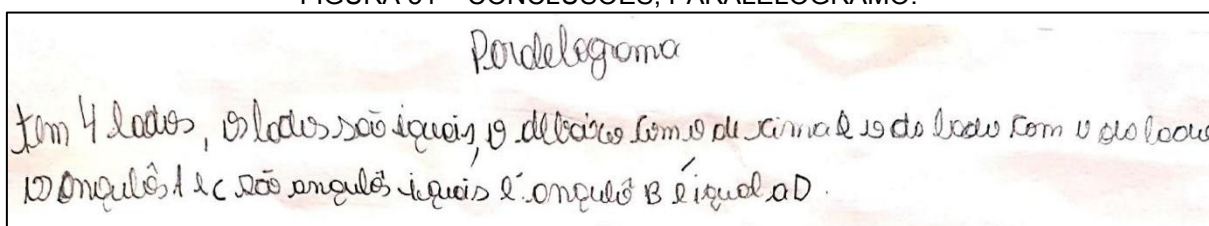 Paralelogramo
tem 4 lados, os lados são iguais, o debaixo com o de cima e o do lado com o do lado
os ângulos A e C são angulos iguais e ângulo B é igual a D.